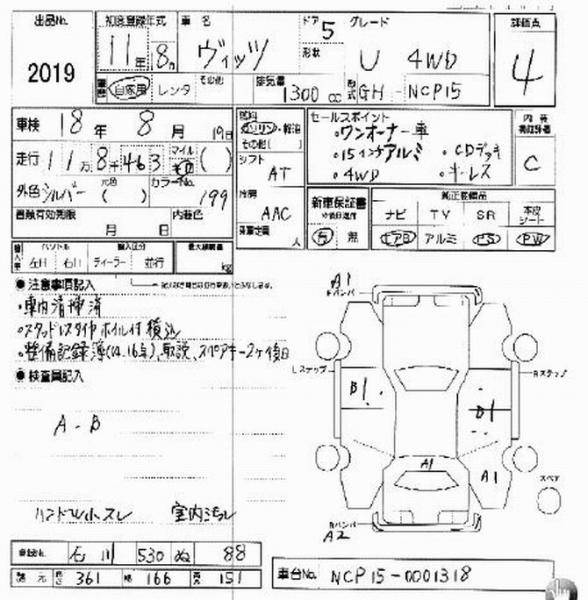 出品No. 2019
初度登録年式 11年 8月
車名 ヴィッツ
ドア 5
形状
グレード U 4WD
評価点 4
自家用 レンタ その他
排気量 1300 cc
型式 GH-NCP15
車検 18年 8月 19日
走行 11万8千463 マイル キロ ( )
外色 シルバー 元色 ( ) カラーNo. 199
車検有効期限 月 日 内装色
燃料 ガソリン・軽油 その他( )
シフト AT
冷房 AAC
乗車定員 人
セールスポイント
・ワンオーナー車
・15インチアルミ ・CDデッキ
・4WD ・キーレス
内装 C
新車保証書 有 無
純正装備品
ナビ TV SR 本皮シート
エアB アルミ PS PW
輸入車 ハンドル 輸入区分 最大積載量
左H 右H ディーラー 並行 kg
●注意事項記入
・車内清掃済
・スタッドレスタイヤホイル付積込
・整備記録簿(12.16), 取説、スペアキー2ヶ後日
●検査員記入
A-B
ハンドルスレ 室内ヨゴレ
A1
Fバンパー
Lステップ Rステップ
B1 B1
A1 A1
スペア
Rバンパー
A2
登録No. 石川 530 ぬ 88
諸元 長さ 361 幅 166 高さ 151
車台No. NCP15-0001318